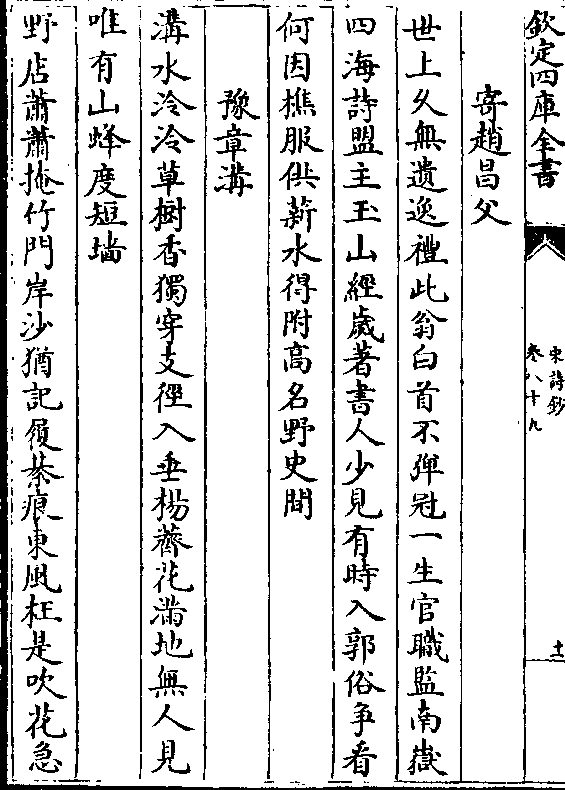 欽定四庫全書
宋詩鈔
卷八十九
十一
寄趙昌父
世上久無遺逸禮此翁白首不彈冠一生官職監南嶽
四海詩盟主玉山經歲著書人少見有時入郭俗爭看
何因樵服供薪水得附高名野史間
豫章溝
溝水泠泠草樹香獨穿支徑入垂楊薺花滿地無人見
唯有山蜂度短墻
野店蕭蕭掩竹門岸沙猶記履綦痕東風枉是吹花急